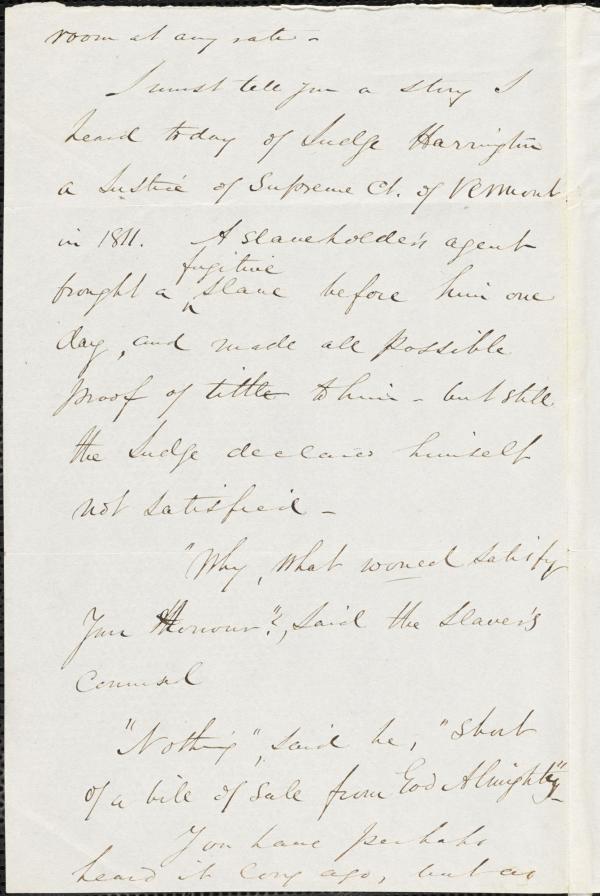 room at any rate -
I must tell you a story I
heard today of Judge Harrington
a Justice of Supreme Ct. of Vermont
in 1811. A slaveholder's agent
fugitive
brought a ^ slave before him one
day, and made all possible
proof of title to him - but still
the Judge declared himself
not satisfied -
"Why, what would satisfy
Your Honour"?, said the slaver's
Counsel
"Nothing", said he, "short
of a bill of sale from God Almighty"-
You have perhaps
heard it long ago, but as